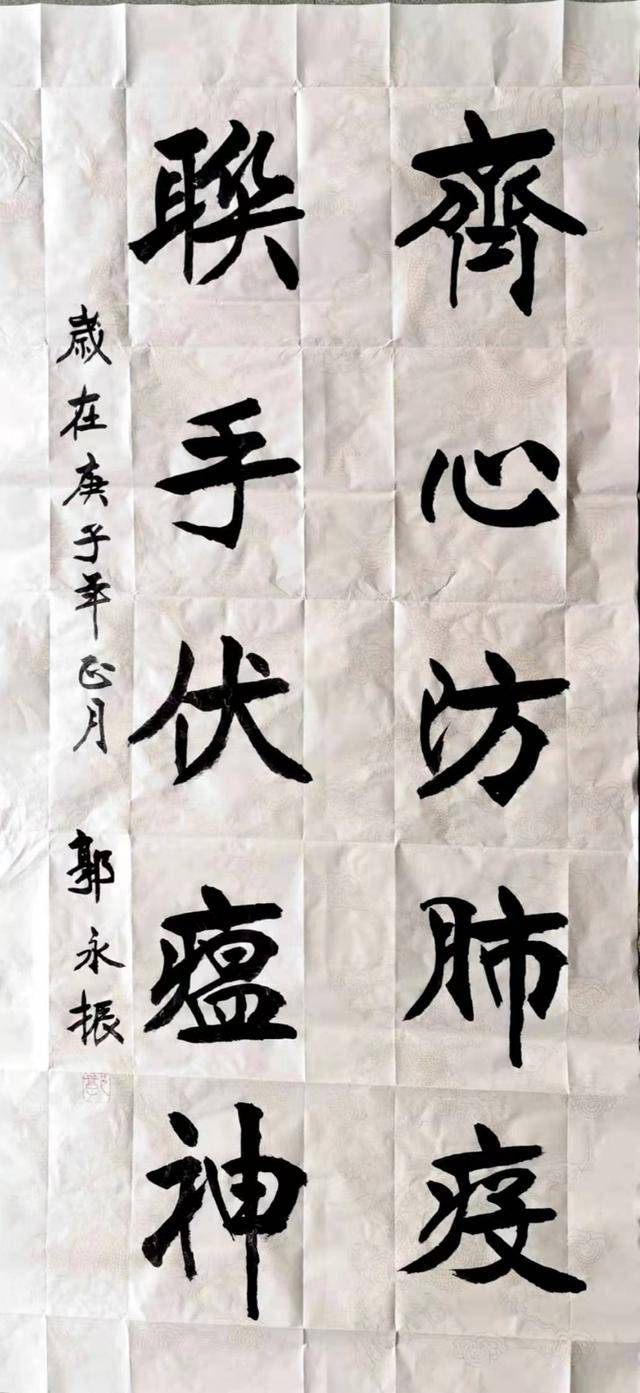 齊心防肺疫
聯手伏瘟神
歲在庚子年正月 郭永振